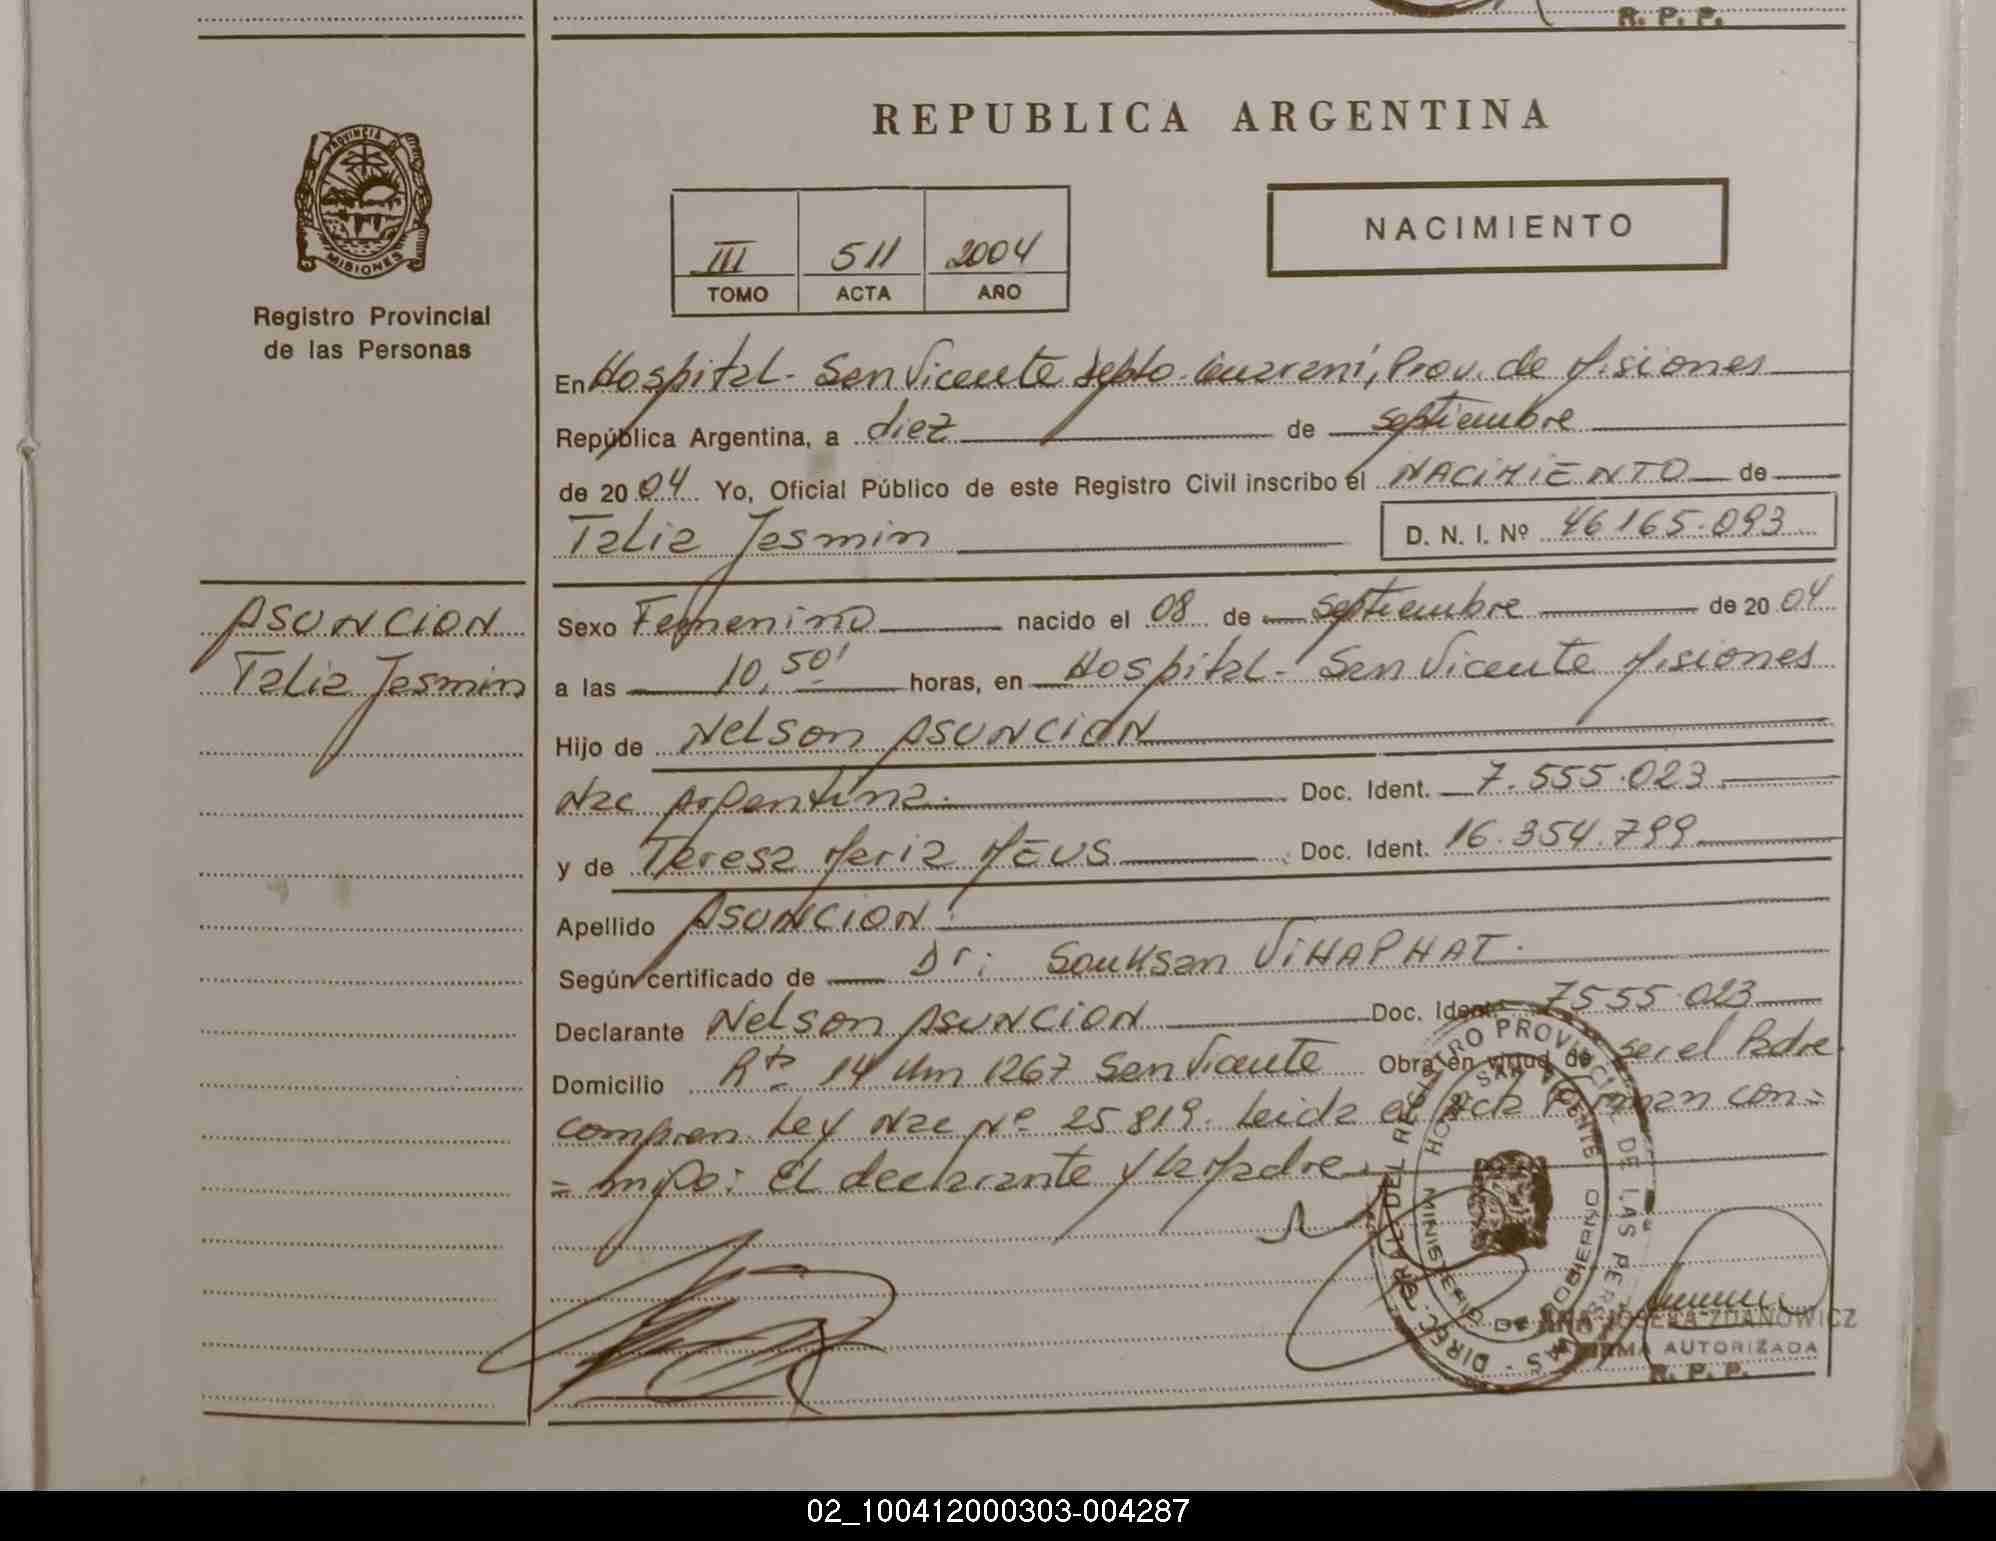 R. P. P.
REPUBLICA ARGENTINA
PROVINCIA DE
MISIONES
III 511 2004
TOMO ACTA AÑO
NACIMIENTO
Registro Provincial
de las Personas
En Hospital - San Vicente Depto. Guaraní, Prov. de Misiones
República Argentina, a diez de septiembre
de 20 04 Yo, Oficial Público de este Registro Civil inscribo el NACIMIENTO de
Talia Jasmin D. N. I. Nº 46165.093
ASUNCION
Talia Jasmin
Sexo Femenino nacido el 08 de septiembre de 20 04
a las 10,50' horas, en Hospital - San Vicente Misiones
Hijo de Nelson ASUNCION
Nac Argentina. Doc. Ident. 7.555.023
y de Teresa Maria MEUS Doc. Ident. 16.354.799
Apellido ASUNCION
Según certificado de Dr: Souksan ViHAPHAT.
Declarante Nelson ASUNCION Doc. Ident. 7555.023
Domicilio Rta 14 Km 1267 San Vicente Obra en virtud de ser el Padre
Ley Nac Nº 25819. Leida el Acta Firman con=
=migo: El declarante y la Madre.
DIREC. GRAL. DEL REGISTRO PROVINCIAL DE LAS PERSONAS
HOSP. SAN VICENTE
MINISTERIO DE GOBIERNO
ANA JOSEFA ZDANOWICZ
FIRMA AUTORIZADA
R. P. P.
02_100412000303-004287